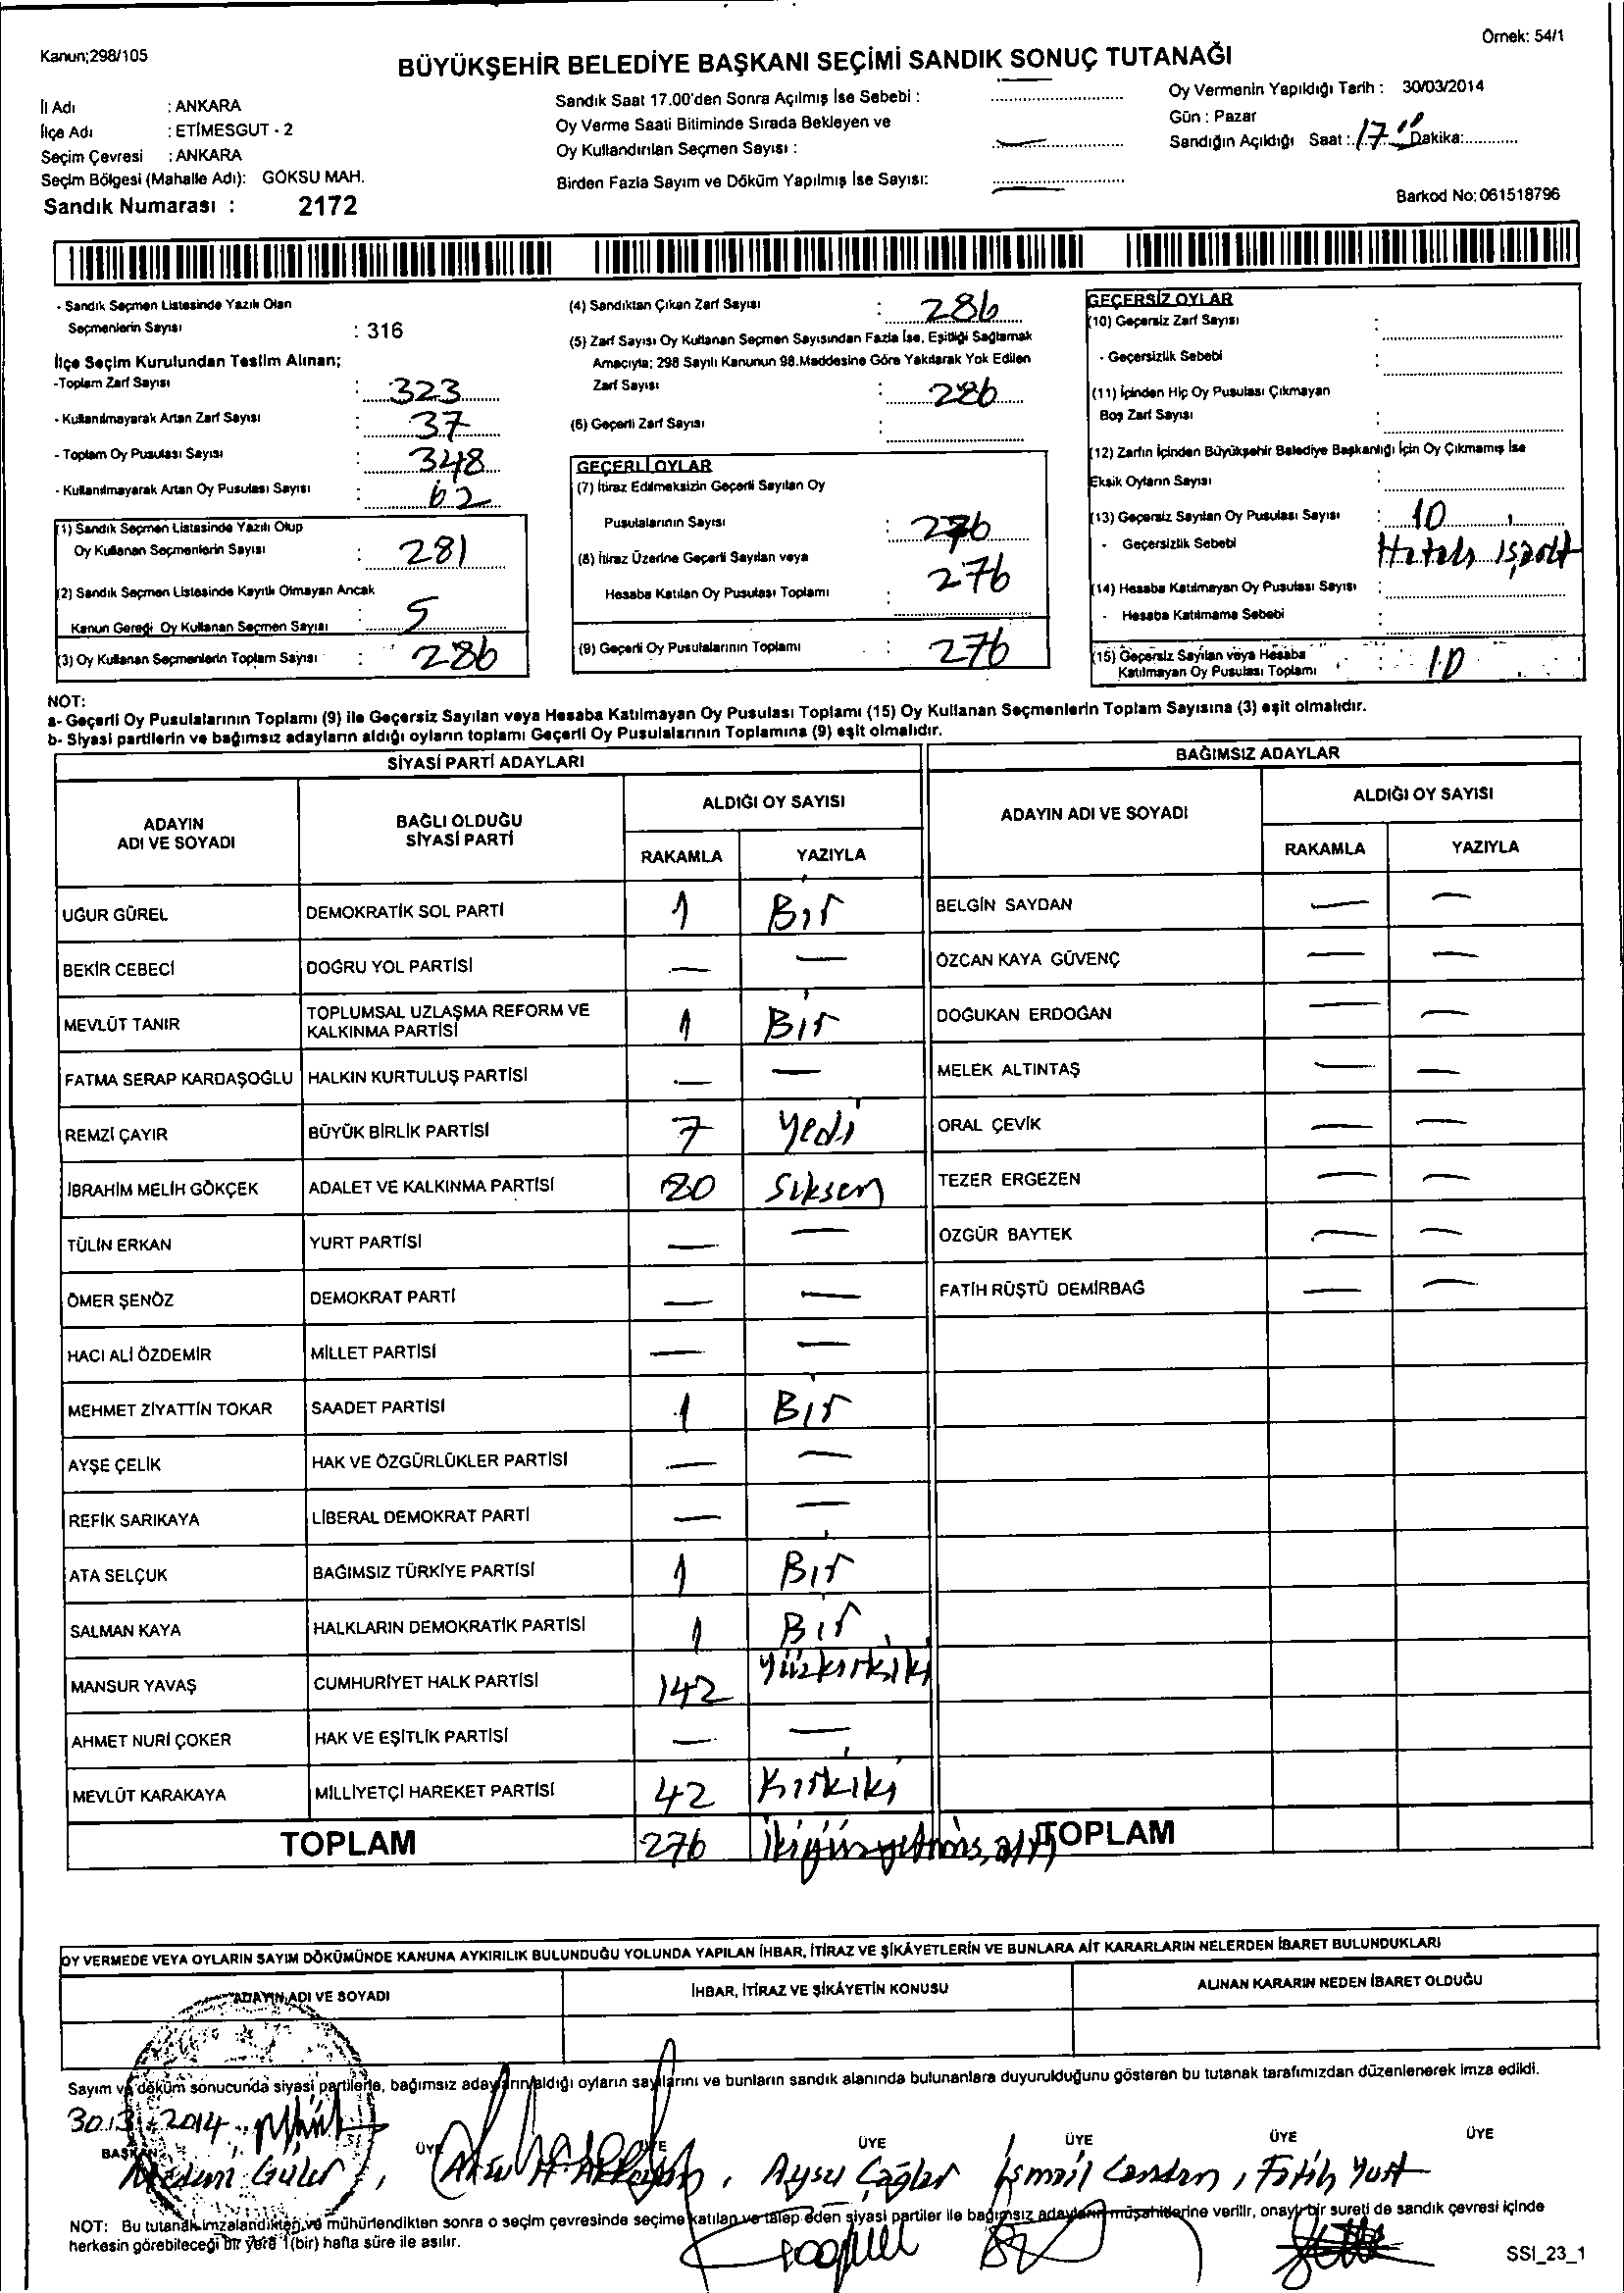 Kanun;298/105
Örnek: 54/1
BÜYÜKŞEHİR BELEDİYE BAŞKANI SEÇİMİ SANDIK SONUÇ TUTANAĞI
İl Adı : ANKARA
İlçe Adı : ETİMESGUT - 2
Seçim Çevresi : ANKARA
Seçim Bölgesi (Mahalle Adı): GÖKSU MAH.
Sandık Numarası : 2172
Sandık Saat 17.00'den Sonra Açılmış İse Sebebi :
Oy Verme Saati Bitiminde Sırada Bekleyen ve
Oy Kullandırılan Seçmen Sayısı :
Birden Fazla Sayım ve Döküm Yapılmış İse Sayısı:
Oy Vermenin Yapıldığı Tarih : 30/03/2014
Gün : Pazar
Sandığın Açıldığı Saat : 17 Dakika:
Barkod No: 061518796
- Sandık Seçmen Listesinde Yazılı Olan
Seçmenlerin Sayısı : 316
İlçe Seçim Kurulundan Teslim Alınan;
-Toplam Zarf Sayısı : 323
- Kullanılmayarak Artan Zarf Sayısı : 37
- Toplam Oy Pusulası Sayısı : 348
- Kullanılmayarak Artan Oy Pusulası Sayısı : 62
(1) Sandık Seçmen Listesinde Yazılı Olup
Oy Kullanan Seçmenlerin Sayısı : 281
(2) Sandık Seçmen Listesinde Kayıtlı Olmayan Ancak
Kanun Gereği Oy Kullanan Seçmen Sayısı : 5
(3) Oy Kullanan Seçmenlerin Toplam Sayısı : 286
(4) Sandıktan Çıkan Zarf Sayısı : 286
(5) Zarf Sayısı Oy Kullanan Seçmen Sayısından Fazla İse, Eşitliği Sağlamak
Amacıyla; 298 Sayılı Kanunun 98.Maddesine Göre Yakılarak Yok Edilen
Zarf Sayısı : 286
(6) Geçerli Zarf Sayısı :
GEÇERLİ OYLAR
(7) İtiraz Edilmeksizin Geçerli Sayılan Oy
Pusulalarının Sayısı : 276
(8) İtiraz Üzerine Geçerli Sayılan veya
Hesaba Katılan Oy Pusulası Toplamı : 276
(9) Geçerli Oy Pusulalarının Toplamı : 276
GEÇERSİZ OYLAR
(10) Geçersiz Zarf Sayısı :
- Geçersizlik Sebebi :
(11) İçinden Hiç Oy Pusulası Çıkmayan
Boş Zarf Sayısı :
(12) Zarfın İçinden Büyükşehir Belediye Başkanlığı İçin Oy Çıkmamış İse
Eksik Oyların Sayısı :
(13) Geçersiz Sayılan Oy Pusulası Sayısı : 10
- Geçersizlik Sebebi : Hatalı
(14) Hesaba Katılmayan Oy Pusulası Sayısı :
- Hesaba Katılmama Sebebi :
(15) Geçersiz Sayılan veya Hesaba
Katılmayan Oy Pusulası Toplamı : 10
NOT:
a- Geçerli Oy Pusulalarının Toplamı (9) ile Geçersiz Sayılan veya Hesaba Katılmayan Oy Pusulası Toplamı (15) Oy Kullanan Seçmenlerin Toplam Sayısına (3) eşit olmalıdır.
b- Siyasi partilerin ve bağımsız adayların aldığı oyların toplamı Geçerli Oy Pusulalarının Toplamına (9) eşit olmalıdır.
SİYASİ PARTİ ADAYLARI
ADAYIN ADI VE SOYADI
BAĞLI OLDUĞU SİYASİ PARTİ
ALDIĞI OY SAYISI
RAKAMLA YAZIYLA
UĞUR GÜREL DEMOKRATİK SOL PARTİ 1 Bir
BEKİR CEBECİ DOĞRU YOL PARTİSİ — —
MEVLÜT TANIR TOPLUMSAL UZLAŞMA REFORM VE KALKINMA PARTİSİ 1 Bir
FATMA SERAP KARDAŞOĞLU HALKIN KURTULUŞ PARTİSİ — —
REMZİ ÇAYIR BÜYÜK BİRLİK PARTİSİ 7 Yedi
İBRAHİM MELİH GÖKÇEK ADALET VE KALKINMA PARTİSİ 80 Siksen
TÜLİN ERKAN YURT PARTİSİ — —
ÖMER ŞENÖZ DEMOKRAT PARTİ — —
HACI ALİ ÖZDEMİR MİLLET PARTİSİ — —
MEHMET ZİYATTİN TOKAR SAADET PARTİSİ 1 Bir
AYŞE ÇELİK HAK VE ÖZGÜRLÜKLER PARTİSİ — —
REFİK SARIKAYA LİBERAL DEMOKRAT PARTİ — —
ATA SELÇUK BAĞIMSIZ TÜRKİYE PARTİSİ 1 Bir
SALMAN KAYA HALKLARIN DEMOKRATİK PARTİSİ 1 Bir
MANSUR YAVAŞ CUMHURİYET HALK PARTİSİ 142 yüzkırkiki
AHMET NURİ ÇOKER HAK VE EŞİTLİK PARTİSİ — —
MEVLÜT KARAKAYA MİLLİYETÇİ HAREKET PARTİSİ 42 Kırkiki
TOPLAM 276 ikiyüzyetmişaltı
BAĞIMSIZ ADAYLAR
ADAYIN ADI VE SOYADI
ALDIĞI OY SAYISI
RAKAMLA YAZIYLA
BELGİN SAYDAN — —
ÖZCAN KAYA GÜVENÇ — —
DOĞUKAN ERDOĞAN — —
MELEK ALTINTAŞ — —
ORAL ÇEVİK — —
TEZER ERGEZEN — —
ÖZGÜR BAYTEK — —
FATİH RÜŞTÜ DEMİRBAĞ — —
TOPLAM
OY VERMEDE VEYA OYLARIN SAYIM DÖKÜMÜNDE KANUNA AYKIRILIK BULUNDUĞU YOLUNDA YAPILAN İHBAR, İTİRAZ VE ŞİKÂYETLERİN VE BUNLARA AİT KARARLARIN NELERDEN İBARET BULUNDUKLARI
ADAYIN ADI VE SOYADI
İHBAR, İTİRAZ VE ŞİKÂYETİN KONUSU
ALINAN KARARIN NEDEN İBARET OLDUĞU
Sayım ve döküm sonucunda siyasi partilerle, bağımsız adayların aldığı oyların sayılarını ve bunların sandık alanında bulunanlara duyurulduğunu gösteren bu tutanak tarafımızdan düzenlenerek imza edildi.
30.3.2014
BAŞKAN ÜYE ÜYE ÜYE ÜYE ÜYE ÜYE
Güler, Aysu Çağlar İsmail Candan, Fatih Yurt
NOT: Bu tutanak imzalandıktan ve mühürlendikten sonra o seçim çevresinde seçime katılan ve talep eden siyasi partiler ile bağımsız adayların müşahitlerine verilir, onaylı bir sureti de sandık çevresi içinde
herkesin görebileceği bir yere 1(bir) hafta süre ile asılır.
SSI_23_1